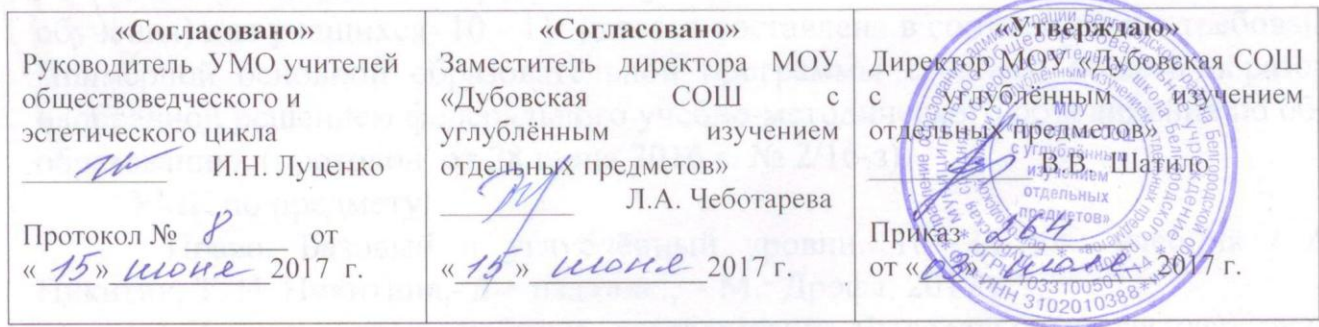 «Согласовано»
Руководитель УМО учителей
обществоведческого и
эстетического цикла
И.Н. Луценко
Протокол № 8 от
« 15 » июня 2017 г.
«Согласовано»
Заместитель директора МОУ
«Дубовская СОШ с
углублённым изучением
отдельных предметов»
Л.А. Чеботарева
« 15 » июня 2017 г.
«Утверждаю»
Директор МОУ «Дубовская СОШ
с углублённым изучением
отдельных предметов»
В.В. Шатило
Приказ 264
от « » 2017 г.
МОУ
с углублённым
изучением
отдельных
предметов»
ИНН 3102010388